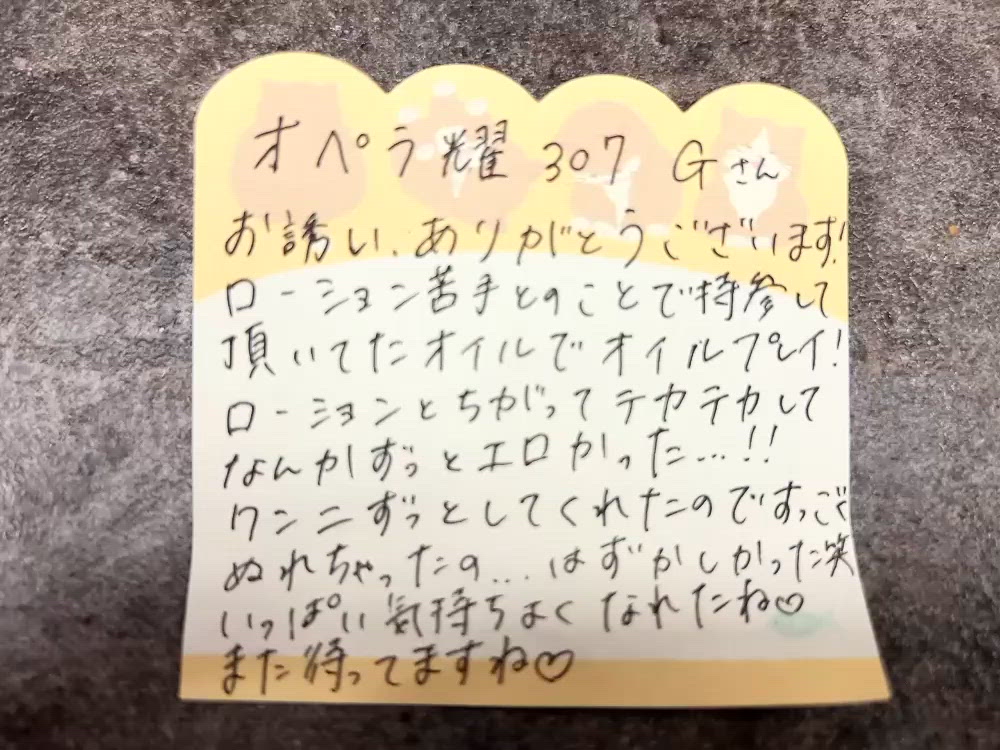 オペラ耀 307 Gさん
お誘い、ありがとうございます!
ローション苦手とのことで持参して
頂いてたオイルでオイルプレイ!
ローションとちがってテカテカして
なんかずっとエロかった…!!
クンニずっとしてくれたのですっごく
ぬれちゃったの…はずかしかった笑
いっぱい気持ちよくなれたね♡
また待ってますね♡